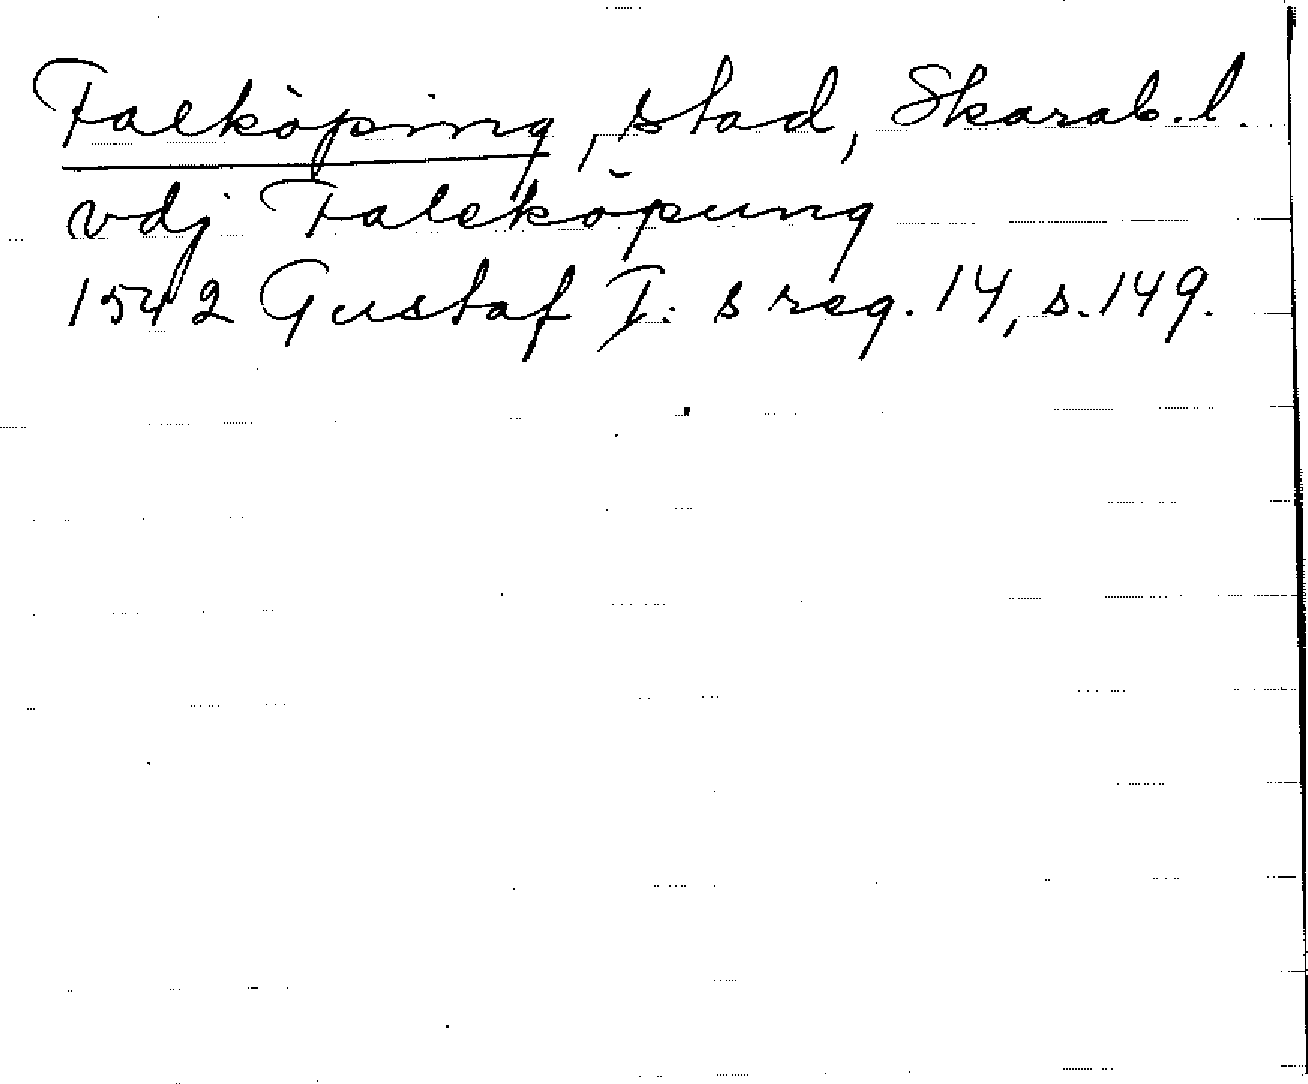 Falköping, stad, Skarab. l.
vdj Faleköpung
1542 Gustaf I: s reg. 14, s. 149.